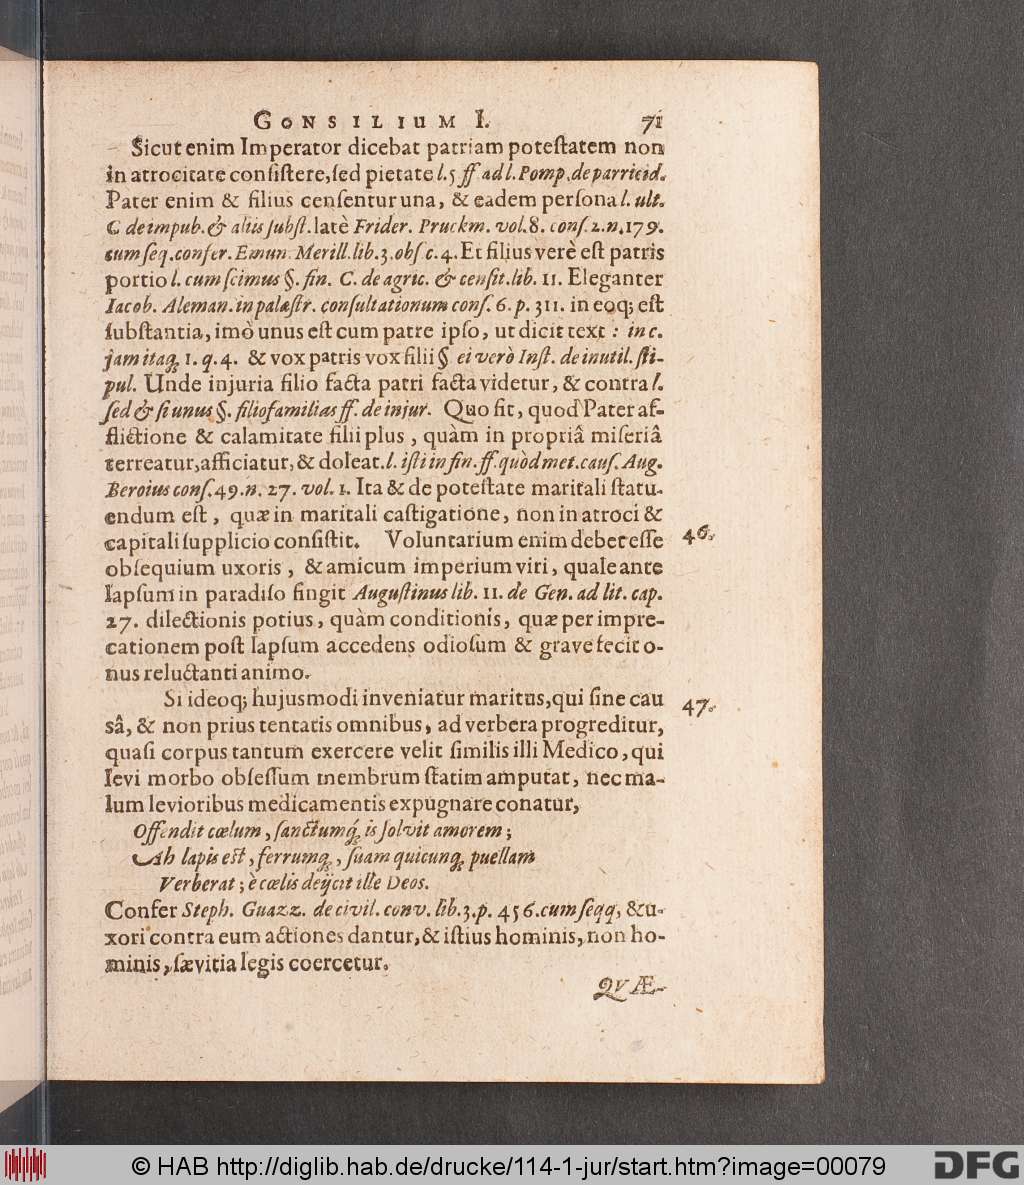 CONSILIUM I. 71
Sicut enim Imperator dicebat patriam potestatem non
in atrocitate consistere, sed pietate l. 5 ff. ad l. Pomp. de parricid.
Pater enim & filius censentur una, & eadem persona l. ult.
C de impub. & aliis subst. latè Frider. Pruckm. vol. 8. cons. 2. n. 179.
cum seq. confer. Emun. Merill. lib. 3. obs c. 4. Et filius verè est patris
portio l. cum scimus §. fin. C. de agric. & censit. lib. 11. Eleganter
Iacob. Aleman. in palæstr. consultationum cons. 6. p. 311. in eoq; est
substantia, imò unus est cum patre ipso, ut dicit text : in c.
jam itaq; 1. q. 4. & vox patris vox filii §. ei verò Inst. de inutil. sti-
pul. Unde injuria filio facta patri facta videtur, & contra l.
sed & si unus §. filiofamilias ff. de injur. Quo fit, quod Pater af-
flictione & calamitate filii plus, quàm in propriâ miseriâ
terreatur, afficiatur, & doleat. l. isti in fin. ff. quòd met. caus. Aug.
Beroius cons. 49. n. 27. vol. 1. Ita & de potestate maritali statu-
endum est, quæ in maritali castigatione, non in atroci &
capitali supplicio consistit. Voluntarium enim debet esse 46.
obsequium uxoris, & amicum imperium viri, quale ante
lapsum in paradiso fingit Augustinus lib. 11. de Gen. ad lit. cap.
27. dilectionis potius, quàm conditionis, quæ per impre-
cationem post lapsum accedens odiosum & grave fecit o-
nus reluctanti animo.
Si ideoq; hujusmodi inveniatur maritus, qui sine cau 47.
sâ, & non prius tentatis omnibus, ad verbera progreditur,
quasi corpus tantum exercere velit similis illi Medico, qui
levi morbo obsessum membrum statim amputat, nec ma-
lum levioribus medicamentis expugnare conatur,
Offendit cœlum, sanctumq́; is solvit amorem;
Ah lapis est, ferrumq;, suam quicunq; puellam
Verberat; è cœlis deijcit ille Deos.
Confer Steph. Guazz. de civil. conv. lib. 3. p. 456. cum seqq, & u-
xori contra eum actiones dantur, & istius hominis, non ho-
minis, sævitia legis coercetur.
QVÆ-
© HAB http://diglib.hab.de/drucke/114-1-jur/start.htm?image=00079
DFG